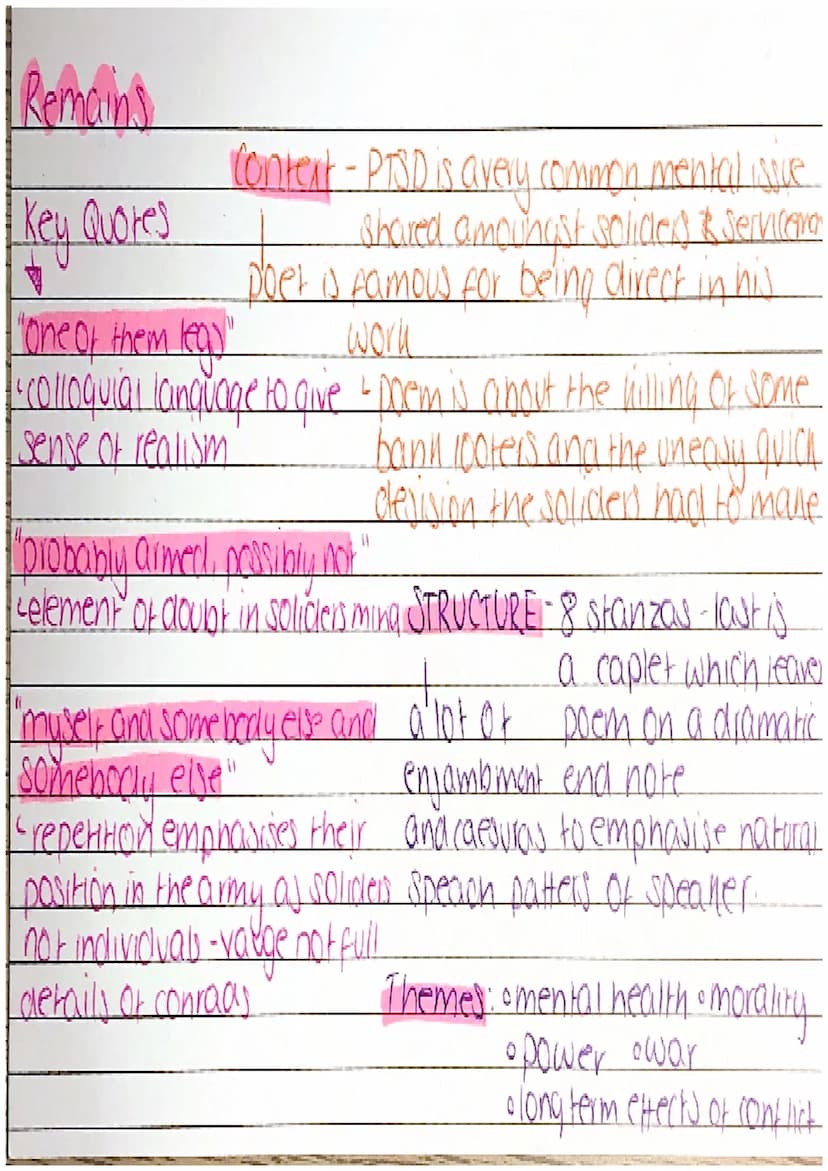 Remains
Context - PTSD is a very common mental issue
shared amoungst soliders &
poet is famous for being direct in his
work
↳ poem is about the killing of some
bank looters and the uneasy quick
desision the soliders had to make
Key Quotes
"one of them legs"
↳colloquial language to give
sense of realism
"probably armed, possibly not"
↳element of doubt in soliders mind
"myself and somebody else and
somebody else"
↳repetition emphasises their
position in the army as soliders
not individuals - vauge not full
details of conrads
STRUCTURE - 8 stanzas - last is
a caplet which leaves
poem on a dramatic
end note
a lot of
enjambment
and caesuras to emphasise natural
speach patters of speaker.
Themes: ∘mental health ∘morality
∘power ∘war
∘long term effects of conflict